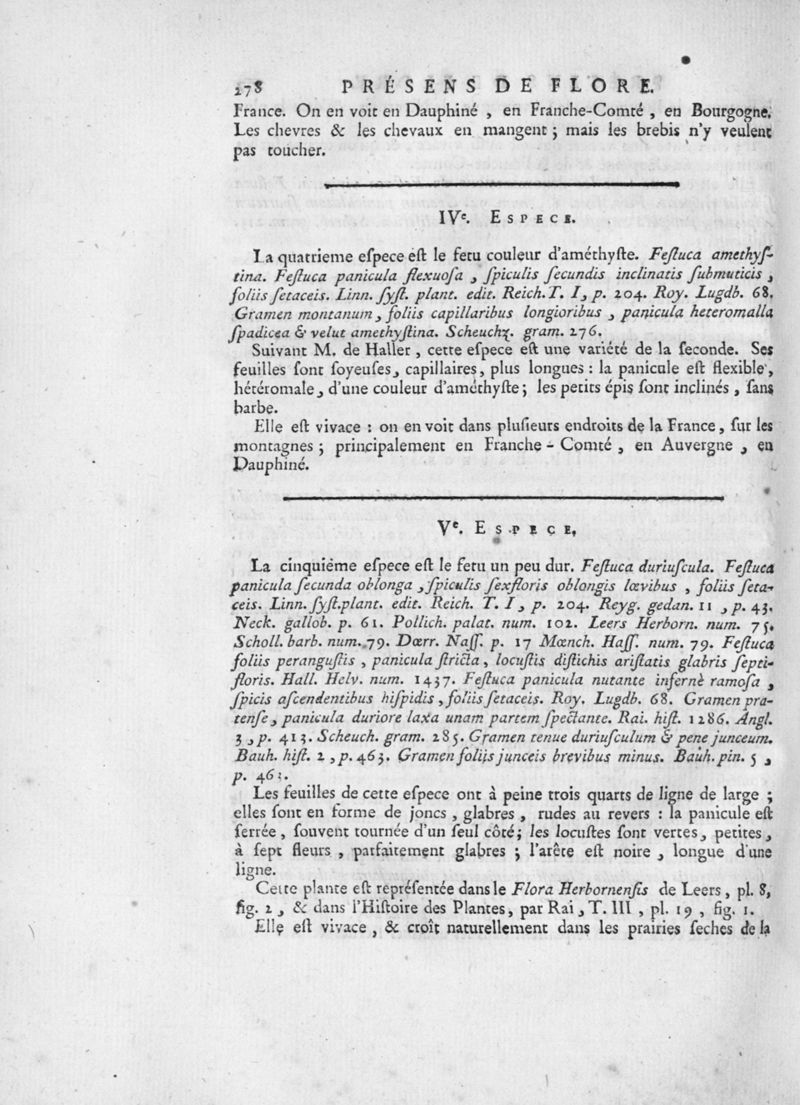 278 PRÉSENS DE FLORE.
France. On en voit en Dauphiné , en Franche-Comté , en Bourgogne.
Les chevres & les chevaux en mangent ; mais les brebis n'y veulent
pas toucher.
IVe. ESPECE.
La quatrieme eſpece eſt le fetu couleur d'améthyſte. Feſtuca amethyſ-
tina. Feſtuca panicula flexuoſa , ſpiculis ſecundis inclinatis ſubmuticis ,
foliis ſetaceis. Linn. ſyſt. plant. edit. Reich. T. I, p. 204. Roy. Lugdb. 68.
Gramen montanum, foliis capillaribus longioribus , panicula heteromalla
ſpadicea & velut amethyſtina. Scheuchz. gram. 276.
Suivant M. de Haller , cette eſpece eſt une variété de la ſeconde. Ses
feuilles ſont ſoyeuſes, capillaires, plus longues : la panicule eſt flexible,
hétéromale, d'une couleur d'améthyſte ; les petits épis ſont inclinés , ſans
barbe.
Elle eſt vivace : on en voit dans pluſieurs endroits de la France, ſur les
montagnes ; principalement en Franche-Comté , en Auvergne , en
Dauphiné.
Ve. ESPECE,
La cinquiéme eſpece eſt le fetu un peu dur. Feſtuca duriuſcula. Feſtuca
panicula ſecunda oblonga , ſpiculis ſexfloris oblongis lœvibus , foliis ſeta-
ceis. Linn. ſyſt. plant. edit. Reich. T. I, p. 204. Reyg. gedan. 11 , p. 43.
Neck. gallob. p. 61. Pollich. palat. num. 102. Leers Herborn. num. 75.
Scholl. barb. num. 79. Dœrr. Naſſ. p. 17 Mœnch. Haſſ. num. 79. Feſtuca
foliis peranguſtis , panicula ſtricta, locuſtis diſtichis ariſtatis glabris ſepti-
floris. Hall. Helv. num. 1437. Feſtuca panicula nutante infernè ramoſa ,
ſpicis aſcendentibus hiſpidis , foliis ſetaceis. Roy. Lugdb. 68. Gramen pra-
tenſe, panicula duriore laxa unam partem ſpectante. Rai. hiſt. 1286. Angl.
3 , p. 413. Scheuch. gram. 285. Gramen tenue duriuſculum & pene junceum.
Bauh. hiſt. 2 , p. 463. Gramen foliis junceis brevibus minus. Bauh. pin. 5 ,
p. 463.
Les feuilles de cette eſpece ont à peine trois quarts de ligne de large ;
elles ſont en forme de joncs , glabres , rudes au revers : la panicule eſt
ſerrée , ſouvent tournée d'un ſeul côté ; les locuſtes ſont vertes, petites,
à ſept fleurs , parfaitement glabres ; l'arête eſt noire , longue d'une
ligne.
Cette plante eſt repréſentée dans le Flora Herbornenſis de Leers , pl. 8,
fig. 2 , & dans l'Hiſtoire des Plantes, par Rai, T. III , pl. 19 , fig. 1.
Elle eſt vivace , & croît naturellement dans les prairies ſeches de la